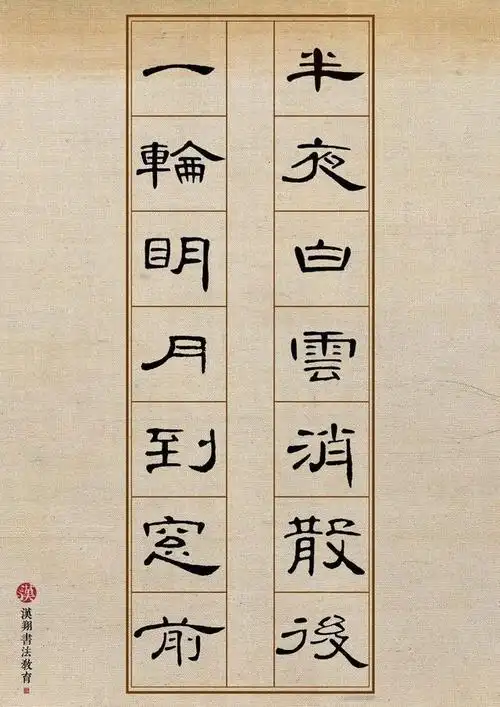 半夜白雲消散後
一輪明月到窓前
漢
漢翔書法教育